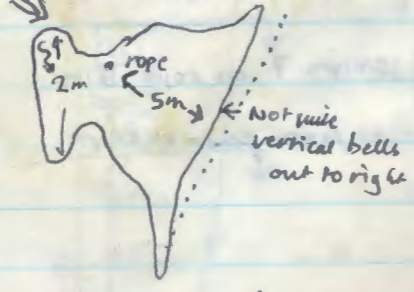 rope
2m
5m
Not quite
vertical bells
out to right